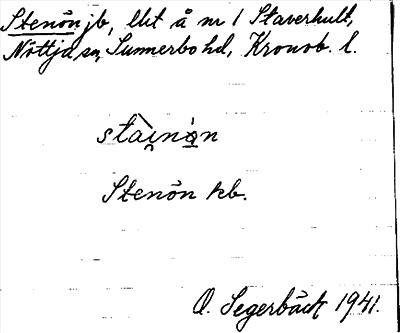 Stenön jb, lht å nr 1 Staverhult,
Nöttja sn, Sunnerbo hd, Kronob. l.
Stenön kb.
O. Segerbäck 1941.